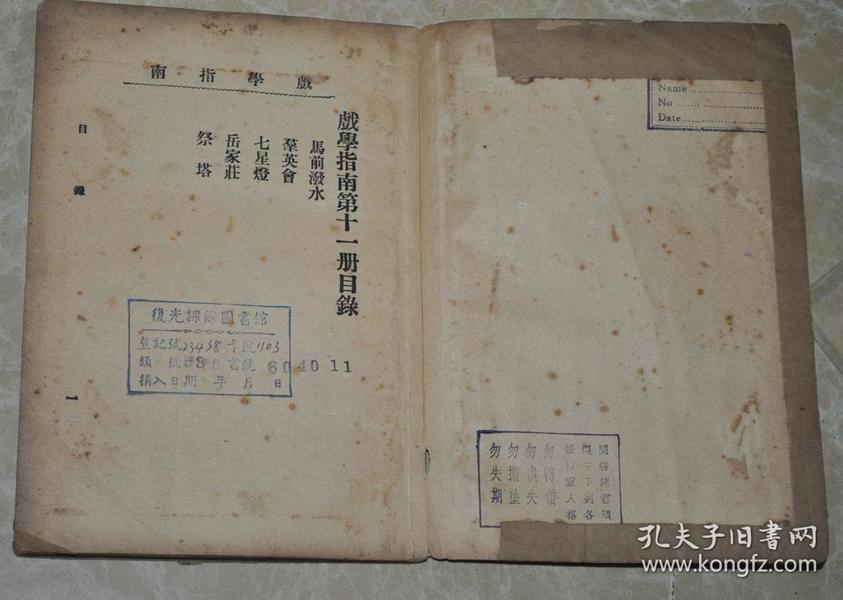 戲學指南
戲學指南第十一册目錄
馬前潑水
羣英會
七星燈
岳家莊
祭塔
目錄
一
復光課餘圖書館
登記號23438 十號1103
類號 80 書號 604011
捐入日期 年 月 日
Name
No
Date
閱書諸君須
遵守下列各
條以重人格
勿轉借
勿遺失
勿撕塗
勿失期
孔夫子旧书网
www.kongfz.com